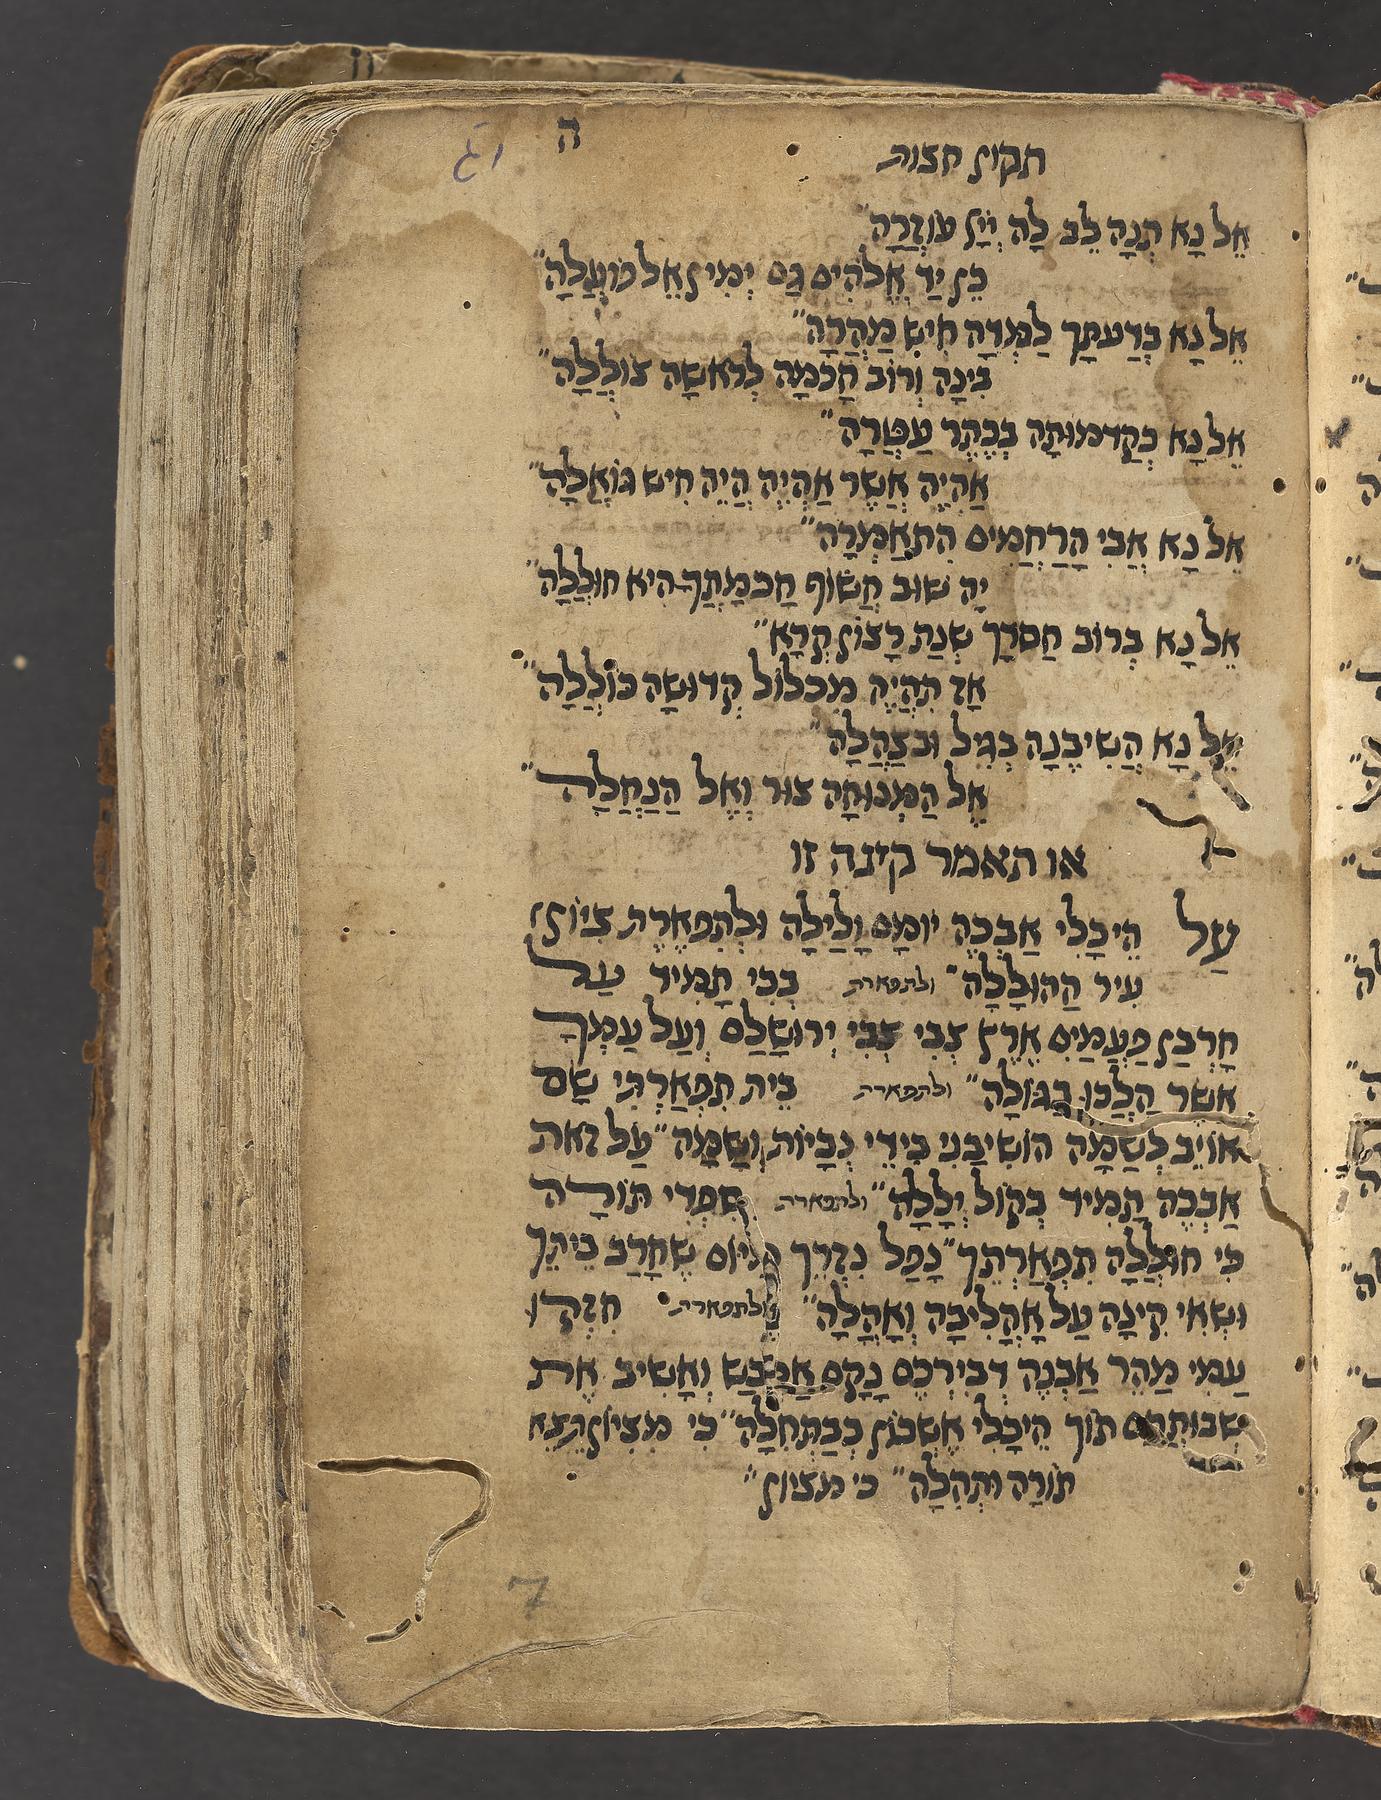 ה
תקון חצות
אֵל נָא תְנָה לֵב לָהּ וְיָין עוֹזְרָהּ״
בֵּן יַד אֱלֹהִים גַּם יְמִין אֵל פּוֹעֲלָהּ״
אֵל נָא בְּדַעְתָּךְ לַמְּדָהּ חִישׁ מַהֲרָה״
בִּינָה וְרוֹב חָכְמָה לְרֹאשָׁהּ צוֹלֲלָה״
אֵל נָא כְּקַדְמוּתָהּ בְּכֶתֶר עַטְּרָהּ״
אֶהְיֶה אֲשֶׁר אֶהְיֶה הֱיֵה חִישׁ גּוֹאֲלָהּ״
אֵל נָא אֲבִי הָרַחְמִים הִתְאַמְּרָה״
יָהּ שׁוּב חֲשׂוֹף חָכְמָתְךָ הִיא חוֹלֲלָה״
אֵל נָא בְּרוֹב חַסְדָּךְ שְׁנַת רָצוֹן קְרָא״
אָז תִּהְיֶה מִכְלוֹל קְדוּשָׁה כּוֹלֲלָה״
אֵל נָא הֲשִׁיבֶנָה בְּגִיל וּבְצָהֳלָה״
אֶל הַמְּנוּחָה צוּר וְאֶל הַנַּחֲלָה״
או תאמר קינה זו
עַל הֵיכָלִי אֶבְכֶּה יוֹמָם וָלַיְלָה וּלְתִפְאֶרֶת צִיּוֹן
עִיר הַהוֹלָלָה״ ולתפארת בְּכִי תָמִיד עַל
חָרְבַן פַּעֲמַיִם אֶרֶץ צְבִי צְבִי יְרוּשָׁלַם וְעַל עַמְּךָ
אֲשֶׁר הָלְכוּ בַגּוֹלָה״ ולתפארת בֵּית תִּפְאַרְתִּי שָׁם
אוֹיֵב לְשַׁמָּה הוֹשִׁיבַנִי בִּידֵי נְבָיוֹת וְשַׁמָּה״ עַל זֹאת
אֶבְכֶּה תָמִיד בְּקוֹל יְלָלָה״ ולתפארת סִפְרֵי תּוֹרָה
כִּי חוּלְּלָה תִפְאַרְתֵּךְ״ נָפַל נִזְרֵךְ מִיּוֹם שֶׁחָרַב בֵּיתֵךְ
וּשְׂאִי קִינָה עַל אָהֳלִיבָה וְאָהֳלָה״ ולתפארת חִזְקוּ
עַמִּי מַהֵר אֶבְנֶה דְבִירְכֶם נָקָם אֶלְבַּשׁ וְאָשִׁיב אֶת
שְׁבוּתְכֶם תּוֹךְ הֵיכָלִי אֶשְׁכּוֹן כְּבַתְּחִלָּה״ כִּי מִצִּיּוֹן תֵּצֵא
תּוֹרָה וּתְהִלָּה״ כי מציון״
7